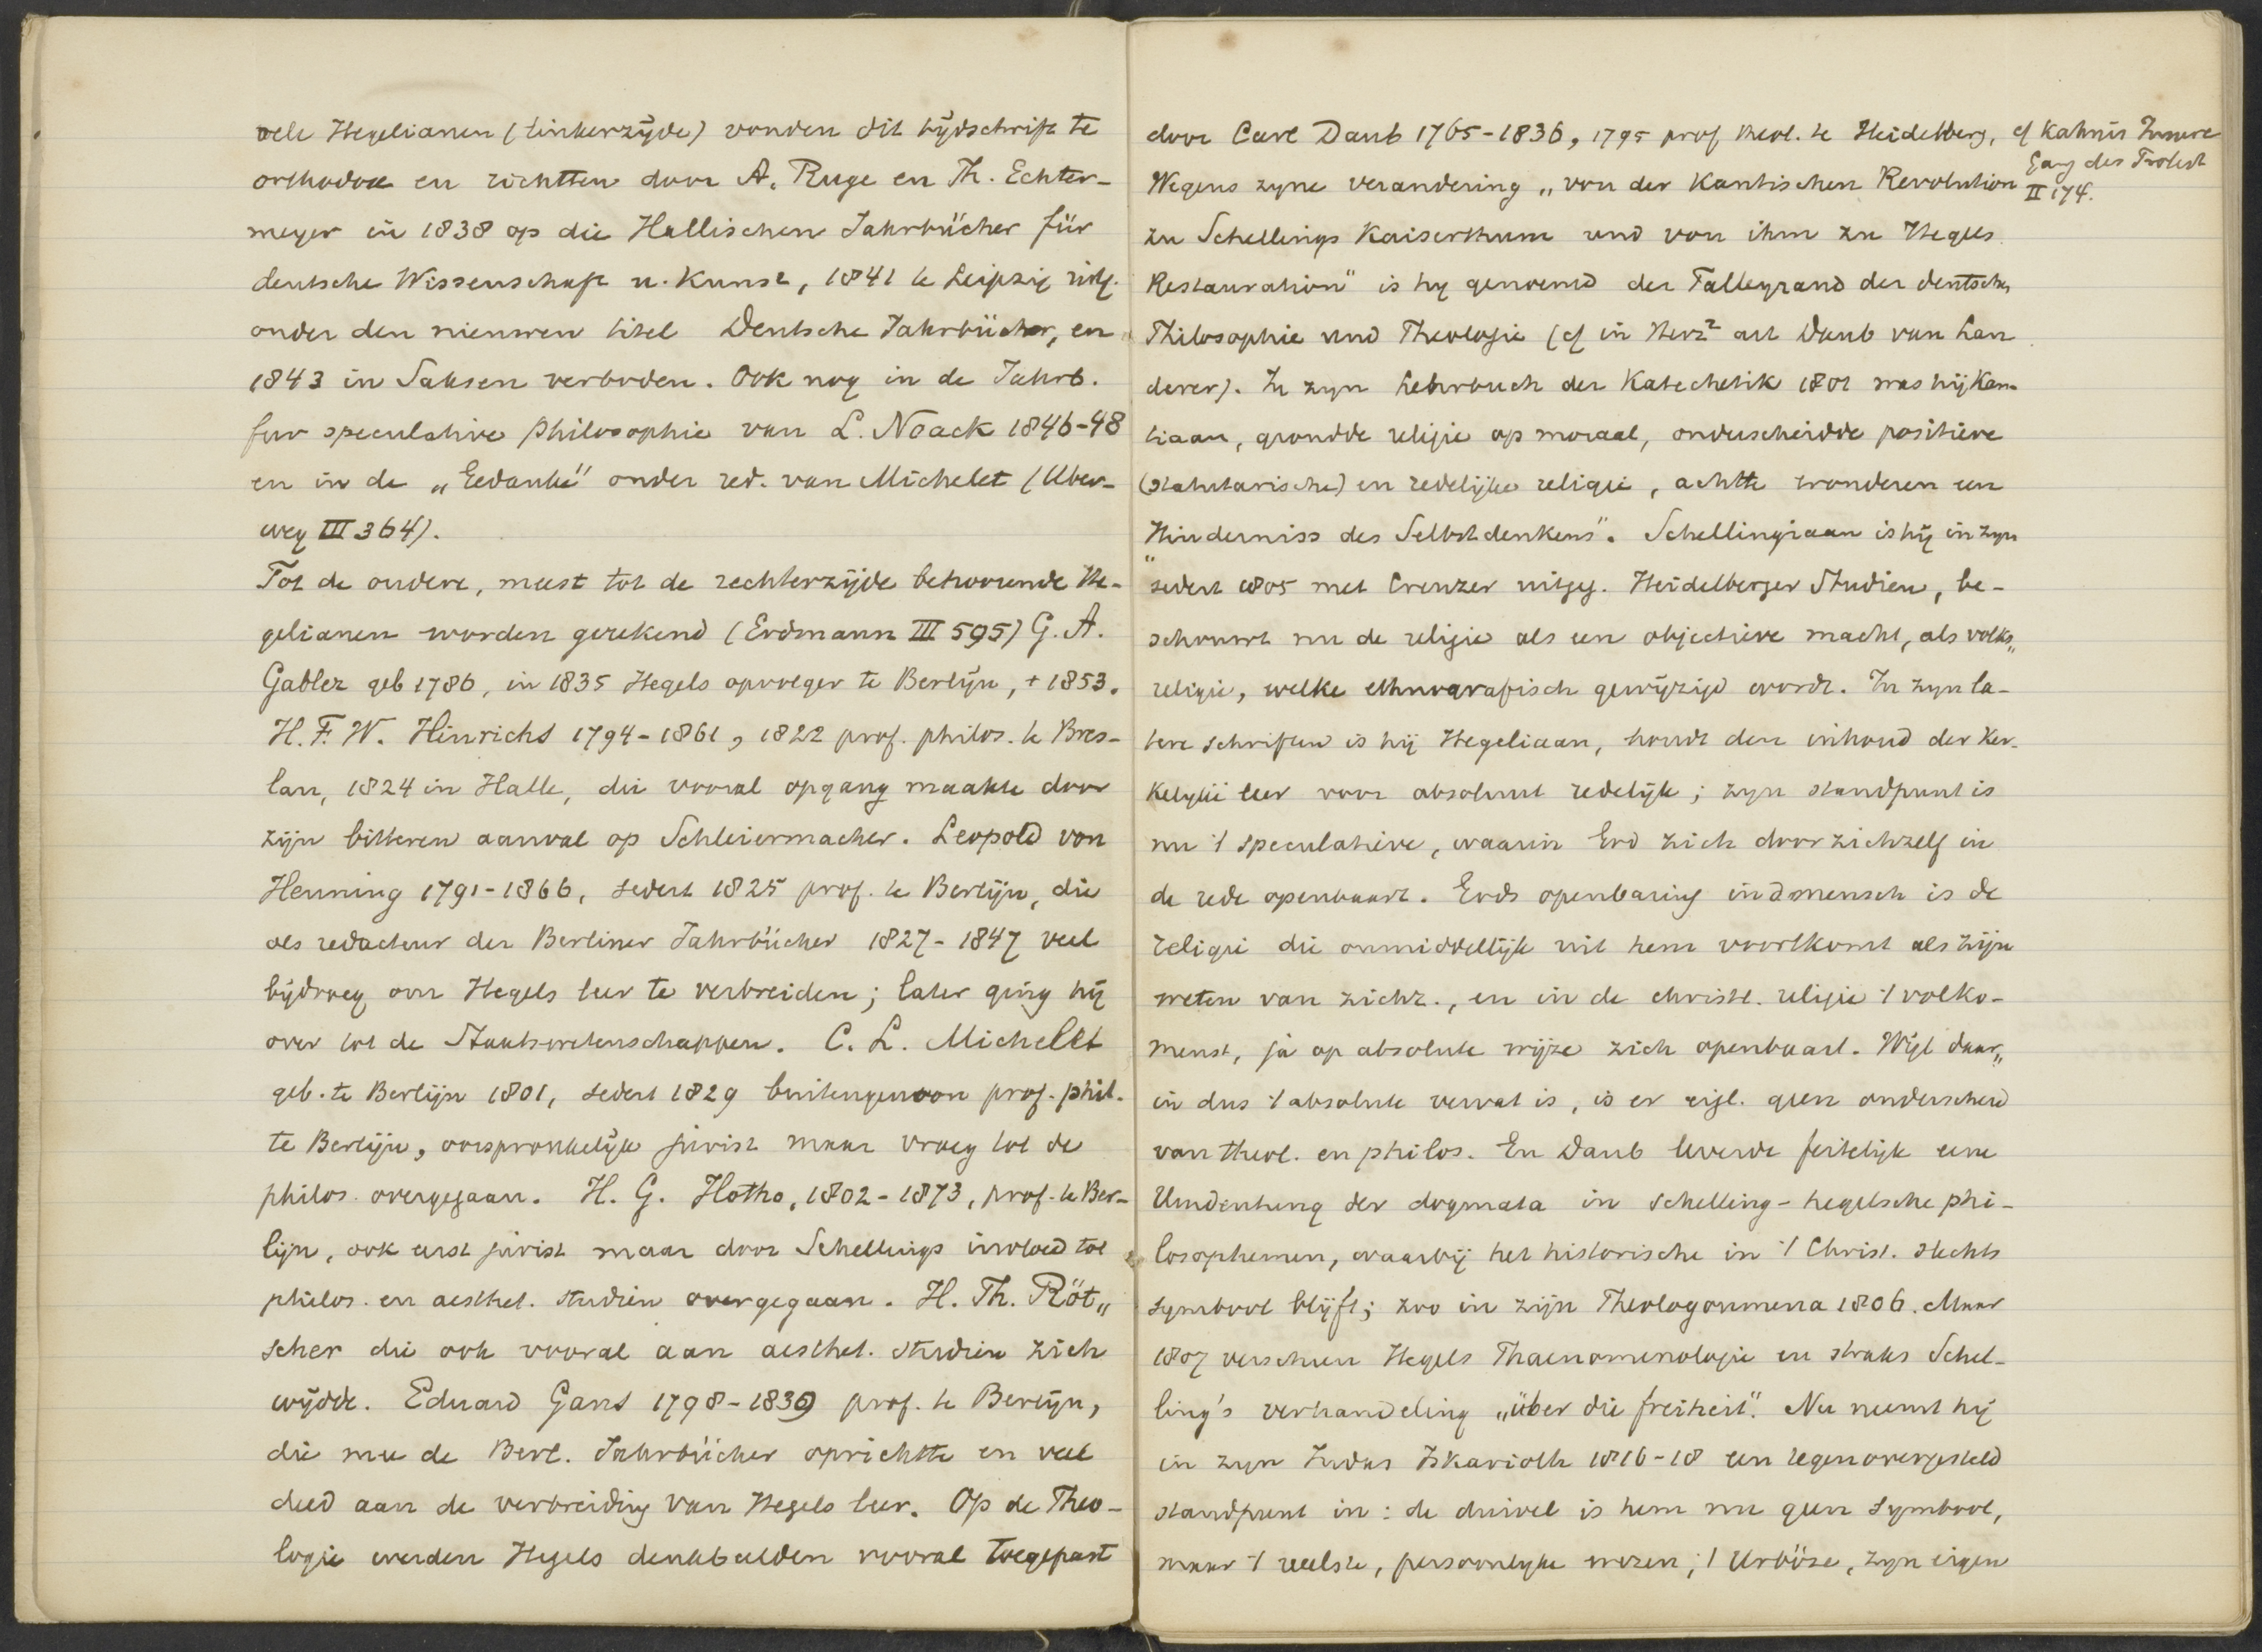 vele Hegelianen (linkerzijde) vonden dit tijdschrift te
orthodox en richtten door A. Ruge en Th. Echter-
meyer in 1838 op die Hallischen Jahrbücher für
deutsche Wissenschaft u. Kunst, 1841 te Leipzig uitg.
onder den nieuwen titel Deutsche Jahrbücher, en
1843 in Saksen verboden. Ook nog in de Jahrb.
fur speculative philosophie van L. Noack 1846-48
en in de „Gedanke" onder red. van Michelet (Uber-
weg III 364).
Tot de oudere, meest tot de rechterzijde behoorende He-
gelianen worden gerekend (Erdmann III 595) G. A.
Gabler geb 1786, in 1835 Hegels opvolger te Berlijn, + 1853.
H. F. W. Hinrichs 1794-1861, 1822 prof. philos. te Bres-
lau, 1824 in Halle, die vooral opgang maakte door
zijn bitteren aanval op Schleiermacher. Leopold von
Henning 1791-1866, sedert 1825 prof. te Berlijn, die
als redacteur der Berliner Jahrbücher 1827-1847 veel
bijdroeg om Hegels leer te verbreiden; later ging hij
over tot de Staatswetenschappen. C. L. Michelet
geb. te Berlijn 1801, sedert 1829 buitengewoon prof. phil.
te Berlijn, oorspronkelijk jurist maar vroeg tot de
philos. overgegaan. H. G. Hotho, 1802-1873, prof. te Ber-
lijn, ook eerst jurist maar door Schellings invloed tot
philos. en aesthet. studien overgegaan. H. Th. Röt„
scher die ook vooral aan aesthet. studien zich
wijdde. Eduard Gans 1798-1839 prof. te Berlijn,
die mee de Berl. Jahrbücher oprichtte en veel
deed aan de verbreiding van Hegels leer. Op de Theo-
logie werden Hegels denkbeelden vooral toegepast
door Carl Daub 1765-1836, 1795 prof theol. te Heidelberg,
cf Kahnis Innere
Gang des Protest
II 174.
Wegens zyne verandering „von der Kantischen Revolution
zu Schellings Kaiserthum und von ihm zu Hegels
Restauration" is hij genoemd der Talleyrand der deutschen
Philosophie und Theologie (cf in Herz² art Daub van Lan
derer). In zyn Lehrbuch der Katechetik 1801 was hij Kan-
tiaan, grondde religie op moraal, onderscheidde positieve
(statutarische) en redelijke religie, achtte wonderen een
„Hinderniss des Selbstdenkens". Schellingiaan is hij in zyn
sedert 1805 met Creuzer uitgeg. Heidelberger Studien, be-
schouwt nu de religie als een objectieve macht, als volks„
religie, welke ethnografisch gewijzigd wordt. In zyn la-
tere schriften is hij Hegeliaan, houdt den inhoud der ker-
kelijke leer voor absoluut redelijk; zyn standpunt is
nu 't speculatieve, waarin God zich door zichzelf in
de rede openbaart. Gods openbaring in d mensch is de
religie die onmiddellijk uit hem voortkomt als zijn
weten van zichz., en in de christl. religie 't volko-
menst, ja op absolute wijze zich openbaart. Wijl daar„
in dus 't absolute vervat is, is er eigl. geen onderscheid
van theol. en philos. En Daub leverde feitelijk eene
Umdeutung der dogmata in schelling-hegelsche phi-
losophemen, waarbij het historische in 't Christ. slechts
symbool blijft; zoo in zijn Theologoumena 1806. Maar
1807 verscheen Hegels Phaenomenologie en straks Schel-
ling's verhandeling „über die freiheit". Nu neemt hij
in zyn Judas Iskarioth 1816-18 een tegenovergesteld
standpunt in: de duivel is hem nu geen symbool,
maar 't reëlste, persoonlijke wezen; 't Urböse, zyn eigen